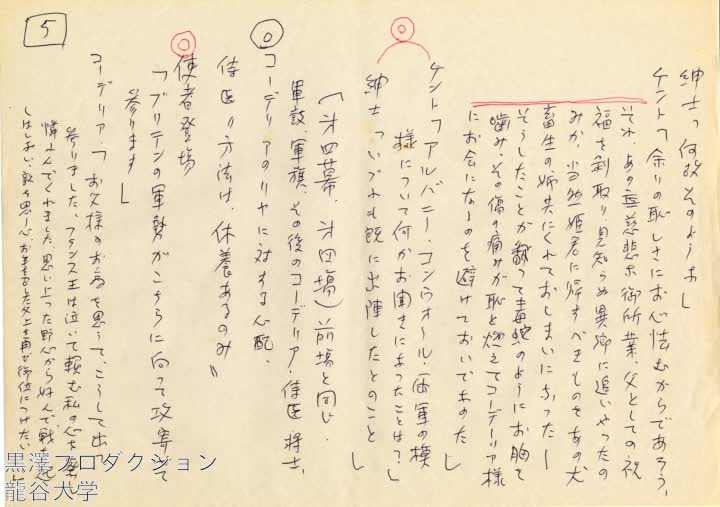 5
紳士「何故そのような」
ケント「余りの恥しさにお心怯むからであろう、
それ、あの無慈悲な御所業、父としての祝
福を剥取り、見知らぬ異郷に追いやったの
みか、当然姫君に帰すべきものをあの犬
畜生の姉共にくれておしまいになった―
そうしたことが翻って毒蛇のようにお胸を
噛み、その傷の痛みが恥と燃えてコーデリア様
にお会になるのを避けておいでなのだ」
ケント「アルバニー、コンウォール、両軍の模
様について何かお聞きになったことは?」
紳士「いづれも既に出陣したとのこと」
(第四幕、第四場)前場と同じ.
軍鼓、軍旗、その後のコーデリア、侍医、将士、
コーデリアのリヤに対する心配.
侍医の方法は、休養あるのみ〃
使者登場
「ブリテンの軍勢がこちらに向って攻寄せて
参ります」
コーデリア「お父様のお為を思うて、こうして出て
参りました、フランス王は泣いて頼む私の心を察し
憐れんでくれました、思い上った野心から好んで戦を
しはしない、敬を思う心、お年を召した父上を再び御位につけたい
黒澤プロダクション
龍谷大学